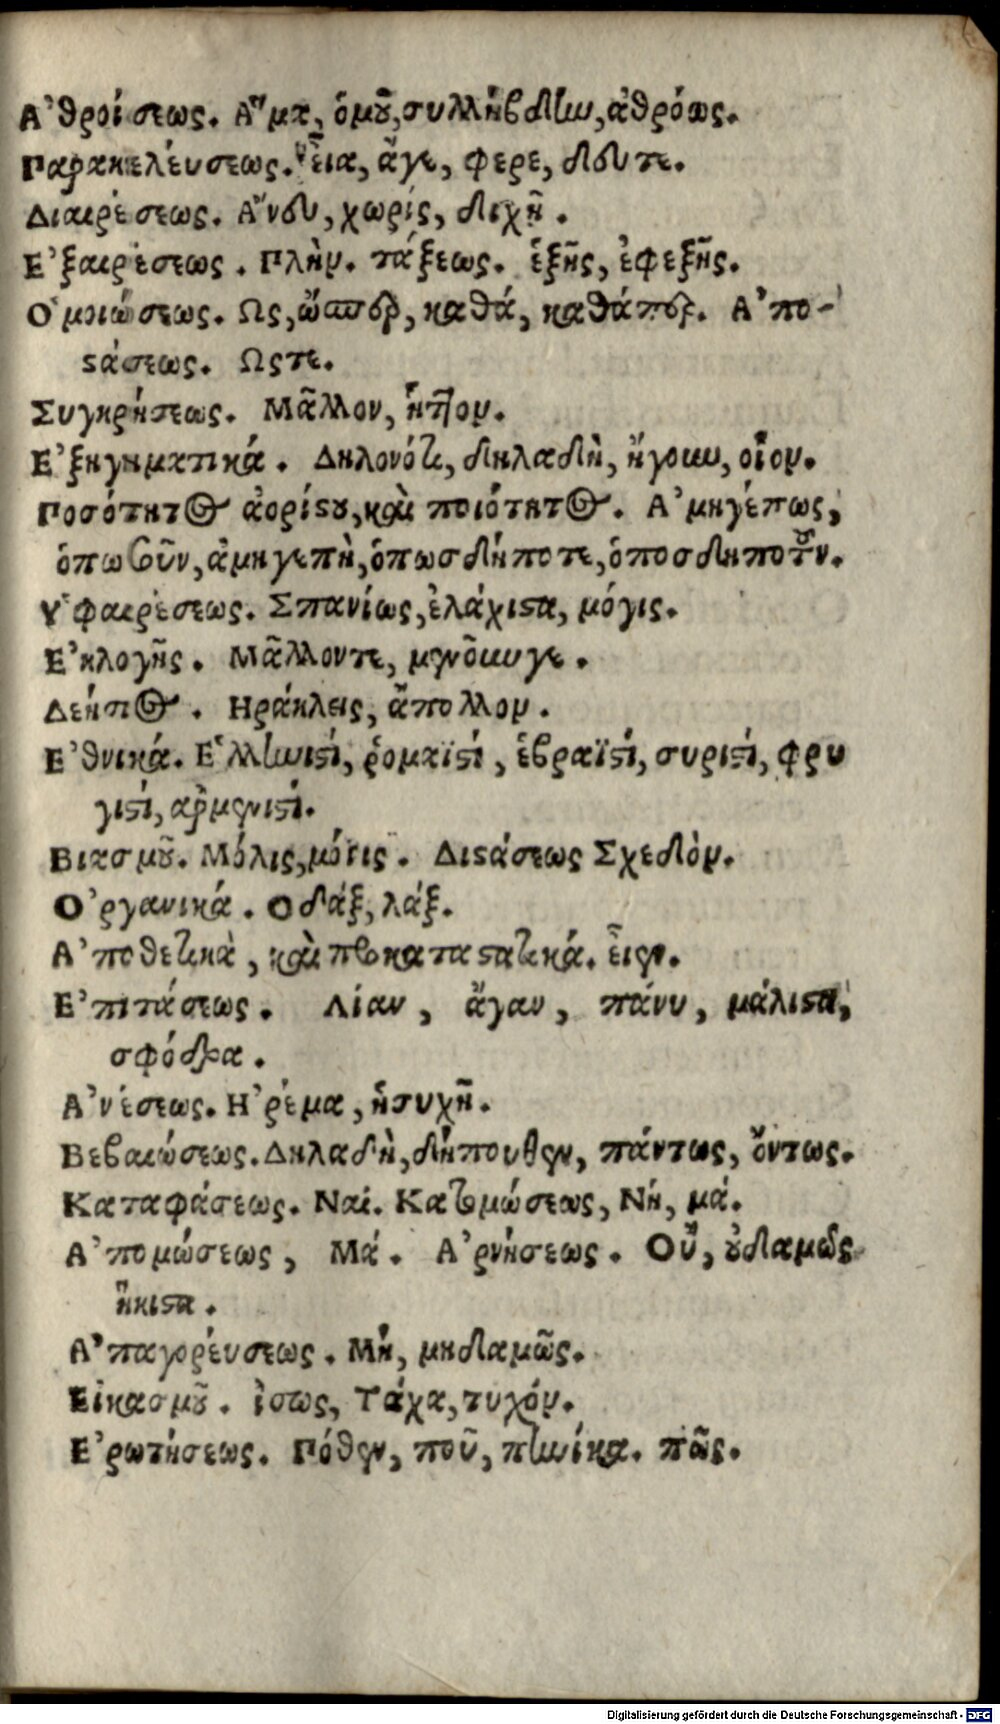 Α᾿θροίσεως. Α῞μα, ὁμοῦ, συλλήβδην, ἀθρόως.
Παρακελέυσεως. ἔια, ἄγε, φερε, δευτε.
Διαιρέσεως. Α῎νευ, χωρίς, διχῆ.
Ε᾿ξαιρέσεως. Πλὴν. τάξεως. ἑξῆς, ἐφεξῆς.
Ο῾μοιώσεως. Ως, ὥσπερ, καθά, καθάπερ. Α᾿πο-
στάσεως. Ωςτε.
Συγκρήσεως. Μᾶλλον, ἧττον.
Ε᾿ξηγηματικά. Δηλονότι, δηλαδὴ, ἤγουν, οἷον.
Ποσότητος ἀορίστου, καὶ ποιότητος. Α᾿μηγέπως,
ὁπωσοῦν, ἀμηγεπὴ, ὁπωσδήποτε, ὁποσδηποτοῦν.
Υ῾φαιρέσεως. Σπανίως, ἐλάχιστα, μόγις.
Ε᾿κλογῆς. Μᾶλλοντε, μενοῦνγε.
Δεήσεος. Ηράκλεις, ἄπολλον.
Ε᾿θνικά. Ε῾λληνιστί, ῥομαϊστί, ἑβραϊστί, συριστί, φρυ
γιστί, αρμενιστί.
Βιασμοῦ. Μόλις, μόγις. Διστάσεως Σχεδὸν.
Ο᾿ργανικά. Οδάξ, λάξ.
Α᾿ποθετικὰ, καὶ προκαταστατικά. εἶεν.
Ε᾿πιτάσεως. Λίαν, ἄγαν, πάνυ, μάλιστα,
σφόδρα.
Α᾿νέσεως. Η᾿ρέμα, ἡσυχῆ.
Βεβαιώσεως. Δηλαδὴ, δήπουθεν, πάντως, ὄντως.
Καταφάσεως. Ναί. Κατομώσεως, Νή, μά.
Α᾿πομώσεως, Μά. Α᾿ρνήσεως. Οὔ, οὐδαμῶς
ἥκιστα.
Α᾿παγορέυσεως. Μή, μηδαμῶς.
Εἰκασμοῦ. ἴσως, Τάχα, τυχόν.
Ε᾿ρωτήσεως. Πόθεν, ποῦ, πηνίκα. πῶς.
Digitalisierung gefördert durch die Deutsche Forschungsgemeinschaft - DFG